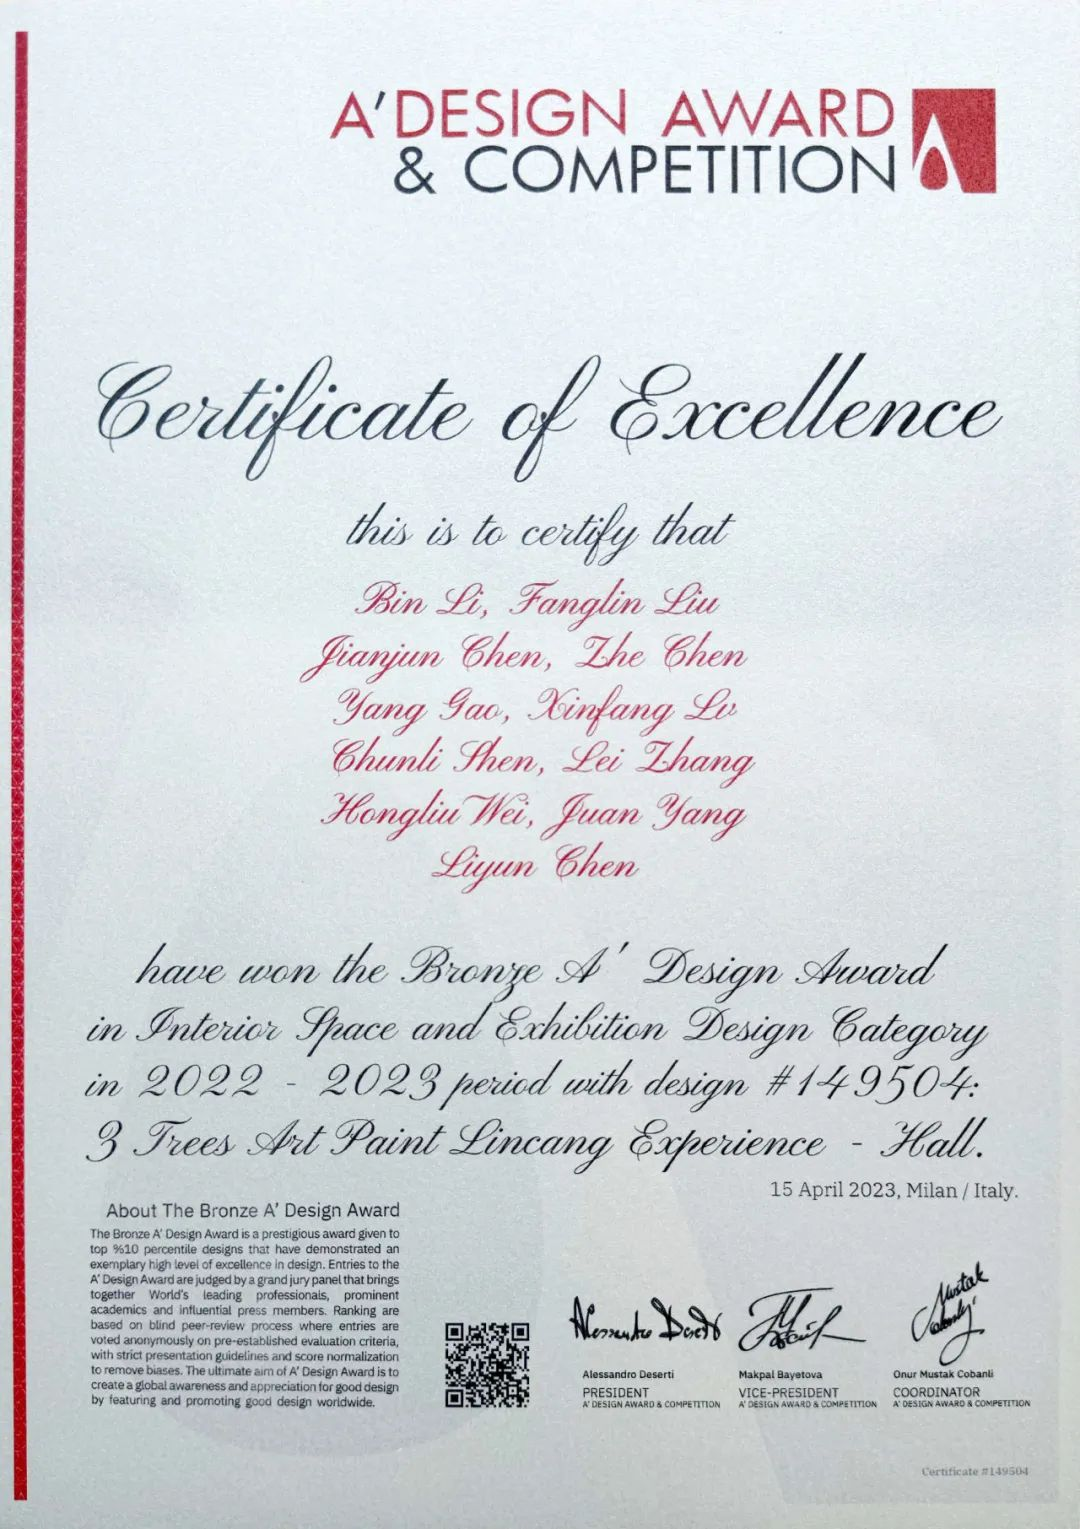 A' DESIGN AWARD
& COMPETITION
Certificate of Excellence
this is to certify that
Bin Li, Fanglin Liu
Jianjun Chen, Zhe Chen
Yang Gao, Xinfang Lv
Chunli Shen, Lei Zhang
Hongliu Wei, Juan Yang
Liyun Chen
have won the Bronze A' Design Award
in Interior Space and Exhibition Design Category
in 2022 - 2023 period with design #149504:
3 Trees Art Paint Lincang Experience - Hall.
15 April 2023, Milan / Italy.
About The Bronze A' Design Award
The Bronze A' Design Award is a prestigious award given to
top %10 percentile designs that have demonstrated an
exemplary high level of excellence in design. Entries to the
A' Design Award are judged by a grand jury panel that brings
together World's leading professionals, prominent
academics and influential press members. Ranking are
based on blind peer-review process where entries are
voted anonymously on pre-established evaluation criteria,
with strict presentation guidelines and score normalization
to remove biases. The ultimate aim of A' Design Award is to
create a global awareness and appreciation for good design
by featuring and promoting good design worldwide.
Alessandro Deserti
PRESIDENT
A' DESIGN AWARD & COMPETITION
Makpal Bayetova
VICE-PRESIDENT
A' DESIGN AWARD & COMPETITION
Onur Mustak Cobanli
COORDINATOR
A' DESIGN AWARD & COMPETITION
Certificate #149504